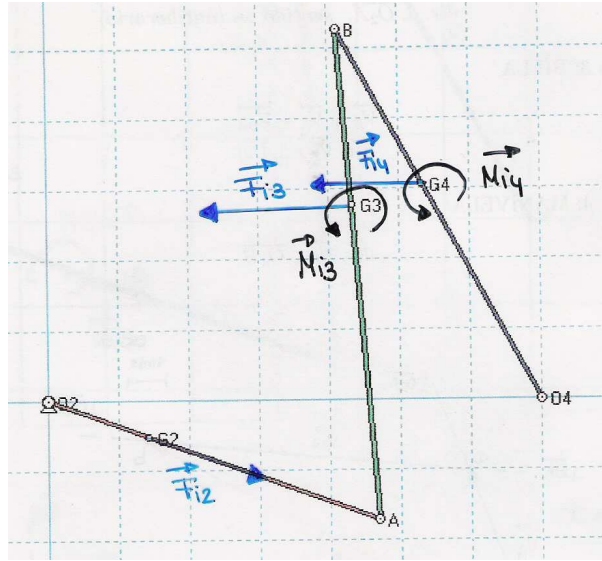 B
Fi4
Fi3
G4
Mi4
G3
Mi3
O2
O4
G2
Fi2
A